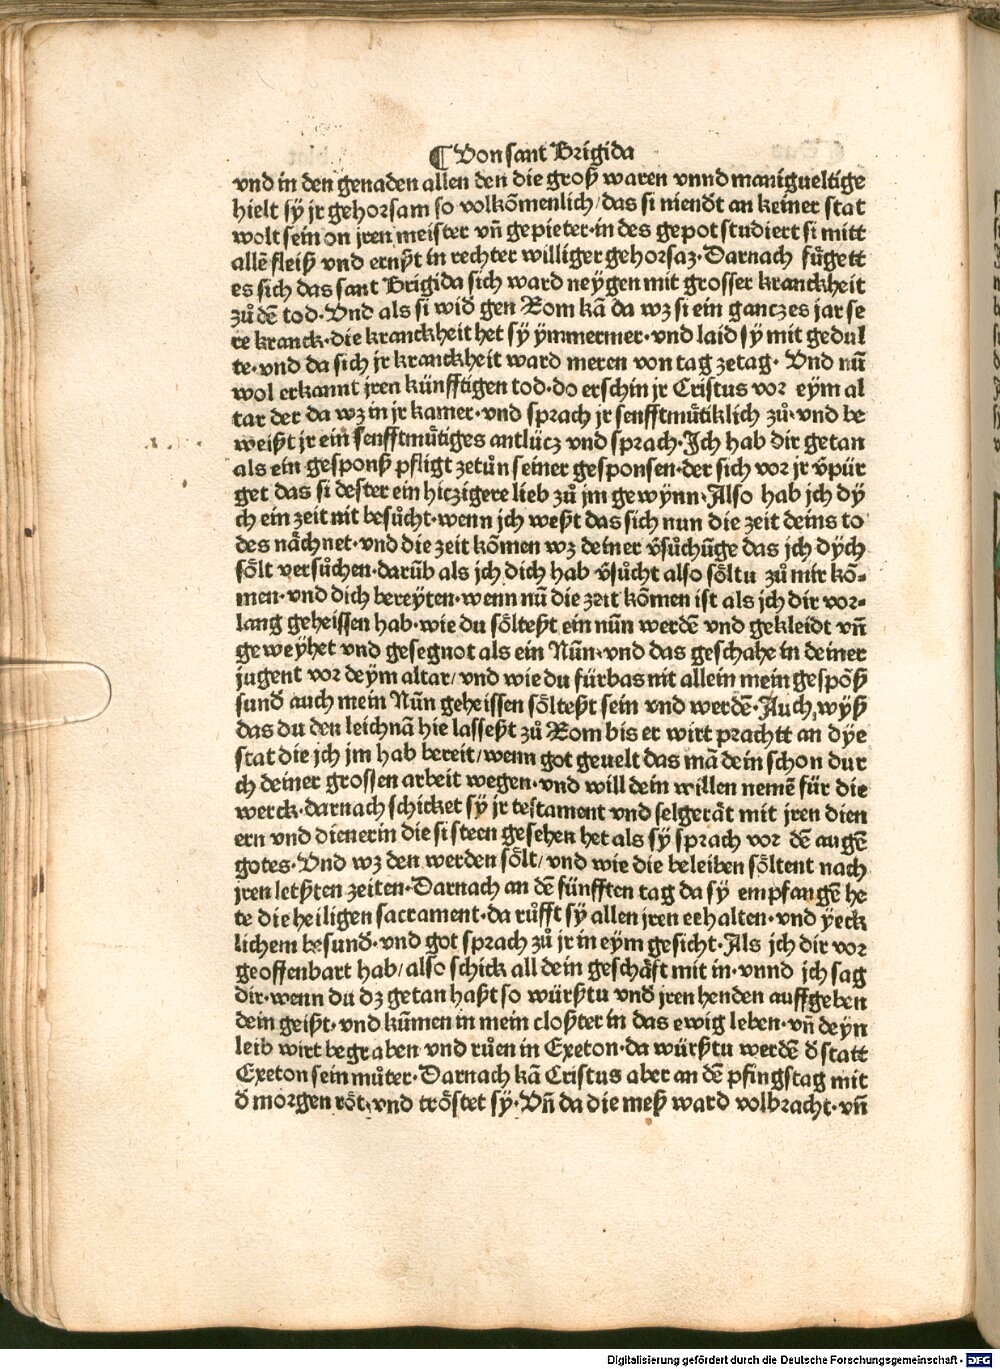 ⸿ Von sant Brigida
vnd in den genaden allen den die groß waren vnnd manigueltige
hielt sÿ jr gehorsam so volkõmenlich/das si niendt an keiner stat
wolt sein on jren meister vñ gepieter·in des gepot studiert si mitt
allẽ fleiß vnd ernßt in rechter williger gehorsaz·Darnach fůgett
es sich das sant Brigida sich ward neÿgen mit grosser kranckheit
zů dẽ tod·Vnd als si wid gen Rom kã da wz si ein ganczes jar se
re kranck·die kranckheit het sÿ ÿmmermer·vnd laid sÿ mit gedul
te·vnd da sich jr kranckheit ward meren von tag zetag· Vnd nũ
wol erkannt jren künfftigen tod·do erschin jr Cristus vor eÿm al
tar der da wz in jr kamer·vnd sprach jr senfftmütiklich zů·vnd be
weißt jr ein senfftmütiges antlücz vnd sprach·Ich hab dir getan
als ein gesponß pfligt zetůn seiner gesponsen·der sich vor jr v̄pür
get das si dester ein hiczigere lieb zů jm gewÿnn·Also hab jch dÿ
ch ein zeit nit besůcht·wenn jch weßt das sich nun die zeit deins to
des nåchnet·vnd die zeit kõmen wz deiner v̄sůchũge das jch dÿch
sölt versůchen·darũb als jch dich hab v̄sůcht also söltu zů mir kõ⸗
men·vnd dich bereÿten·wenn nũ die zeit kõmen ist als jch dir vor⸗
lang geheissen hab·wie du sölteßt ein nũn werdẽ vnd gekleidt vñ
geweÿhet vnd gesegnot als ein Nũn·vnd das geschahe in deiner
jugent vor deÿm altar/vnd wie du fürbas nit allein mein gespõß
sund̄ auch mein Nũn geheissen sölteßt sein vnd werdẽ·Auch wÿß
das du den leichnã hie lasseßt zů Rom bis er wirt prachtt an dÿe
stat die jch jm hab bereit/wenn got geuelt das mã dein schon dur
ch deiner grossen arbeit wegen·vnd will dein willen nemẽ für die
werck·darnach schicket sÿ jr testament vnd selgerät mit jren dien
ern vnd dienerin die si steen gesehen het als sÿ sprach vor dẽ augẽ
gotes·Vnd wz den werden sölt/vnd wie die beleiben söltent nach
jren letßten zeiten·Darnach an dẽ fünfften tag da sÿ empfangẽ he
te die heiligen sacrament·da růfft sÿ allen jren eehalten·vnd ÿeck
lichem besund̄·vnd got sprach zů jr in eÿm gesicht·Als jch dir vor
geoffenbart hab/also schick all dein geschäft mit in·vnnd jch sag
dir·wenn du dz getan haßt so würßtu vnd̄ jren henden auffgeben
dein geißt·vnd kũmen in mein cloßter in das ewig leben·vñ deÿn
leib wirt begraben vnd růen in Exeton·da würßtu werdẽ d̄ statt
Exeton sein můter·Darnach kã Cristus aber an dẽ pfingstag mit
d̄ morgen röt·vnd tröstet sÿ·Vñ da die meß ward volbracht·vñ
Digitalisierung gefördert durch die Deutsche Forschungsgemeinschaft - DFG